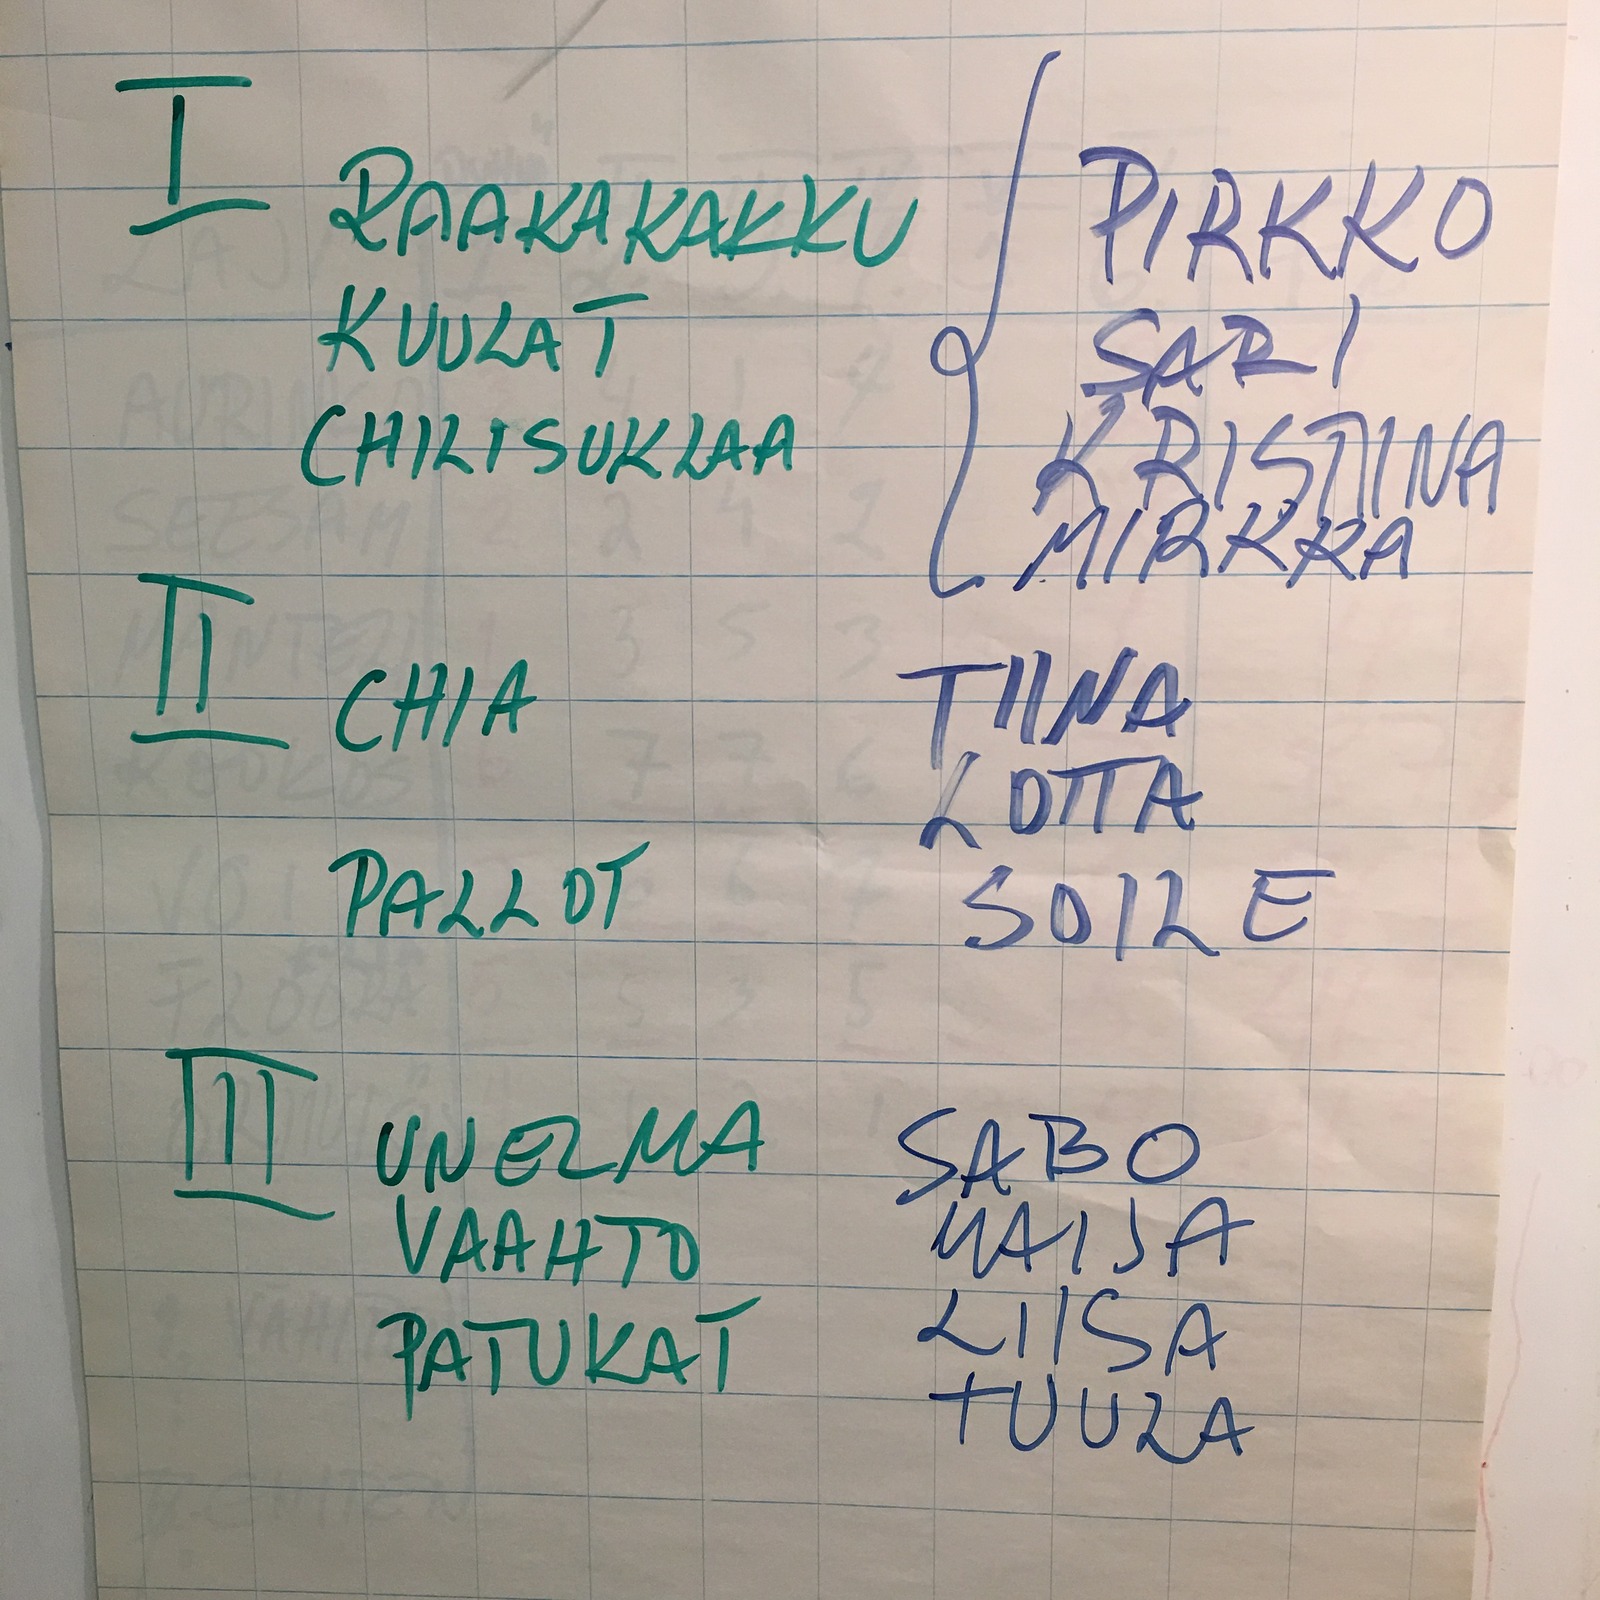 I
RAAKAKAKKU
KUULAT
CHILISUKLAA
PIRKKO
SARI
KRISTIINA
MIRKKA
II
CHIA
PALLOT
TIINA
LOTTA
SOILE
III
UNELMA
VAAHTO
PATUKAT
SABO
MAIJA
LIISA
TUULA